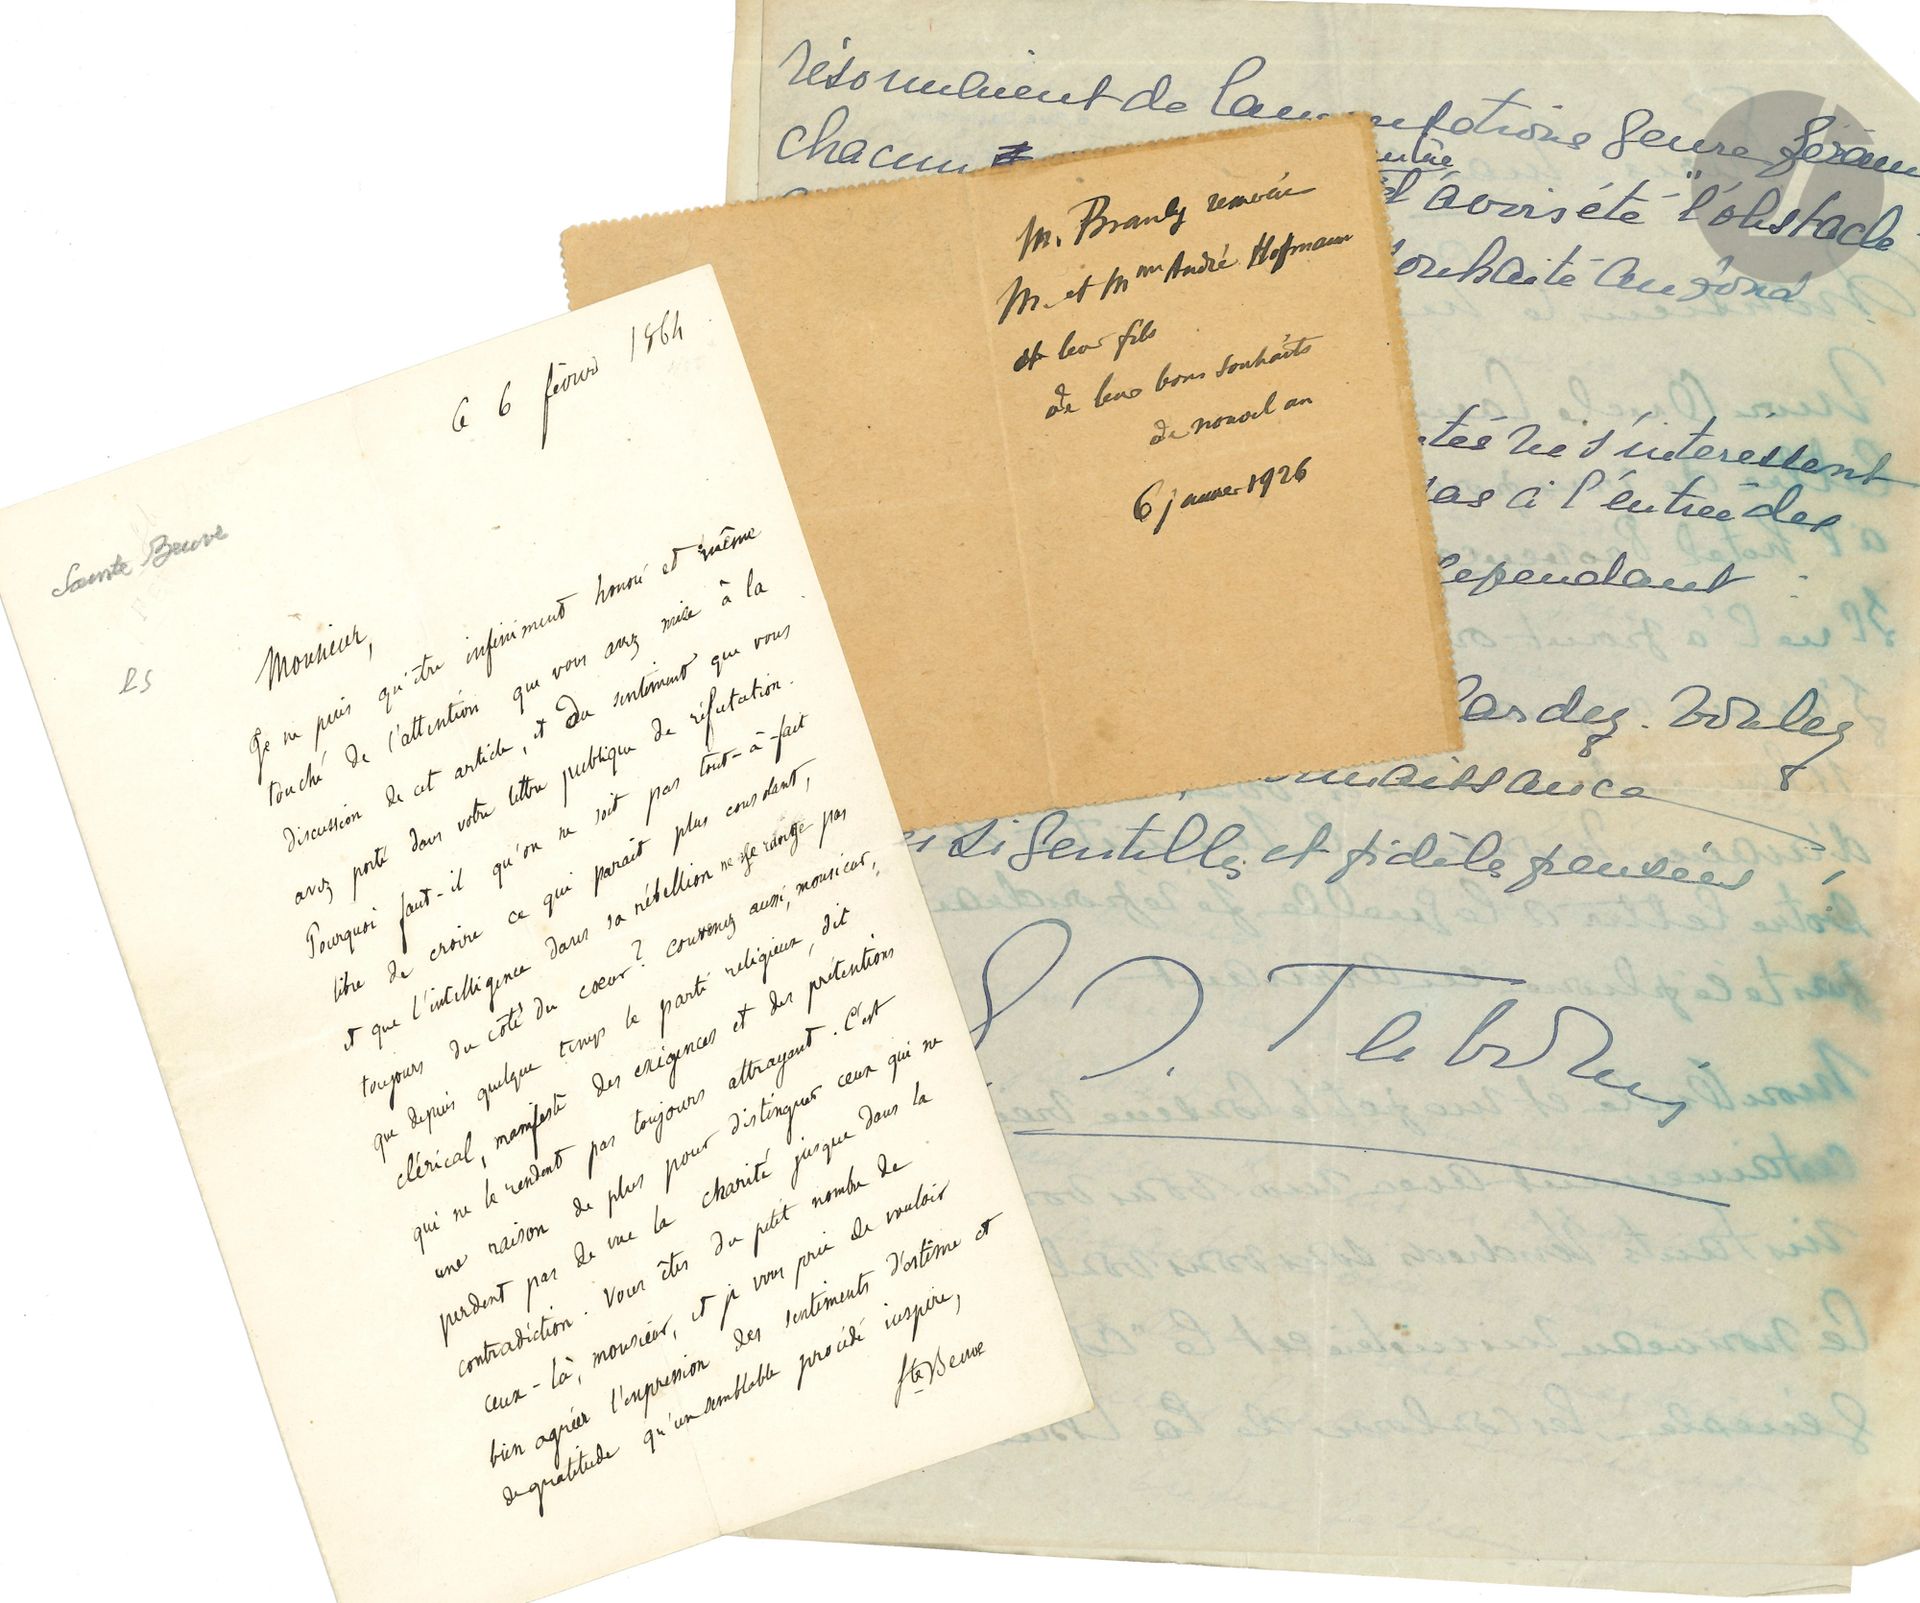 ce 6 février 1864
Sainte Beuve
Monsieur,
Je ne puis qu'être infiniment honoré et même
touché de l'attention que vous avez mise à la
discussion de cet article, et du sentiment que vous
avez porté dans votre lettre publique de réfutation.
Pourquoi faut-il qu'on ne soit pas tout-à-fait
libre de croire ce qui paraît plus consolant,
et que l'intelligence dans sa rébellion ne se range pas
toujours du côté du cœur? Convenez aussi, monsieur,
que depuis quelque temps le parti religieux, dit
clérical, manifeste des exigences et des prétentions
qui ne le rendent pas toujours attrayant. C'est
une raison de plus pour distinguer ceux qui ne
perdent pas de vue la charité jusque dans la
contradiction. Vous êtes du petit nombre de
ceux-là, monsieur, et je vous prie de vouloir
bien agréer l'expression des sentiments d'estime et
de gratitude qu'un semblable procédé inspire,
Ste Beuve
M. Branly remercie
M. et Mme André Hofmann
et leur fils
de leurs bons souhaits
de nouvel an
6 janvier 1926
résonnaient de Lamentations genre
chacun
d'avoir été "l'obstacle"
souhaité au fond
ne s'intéressent
pas à l'entrée des
cependant :
tardez. Voulez
si gentilles et fidèles pensées,